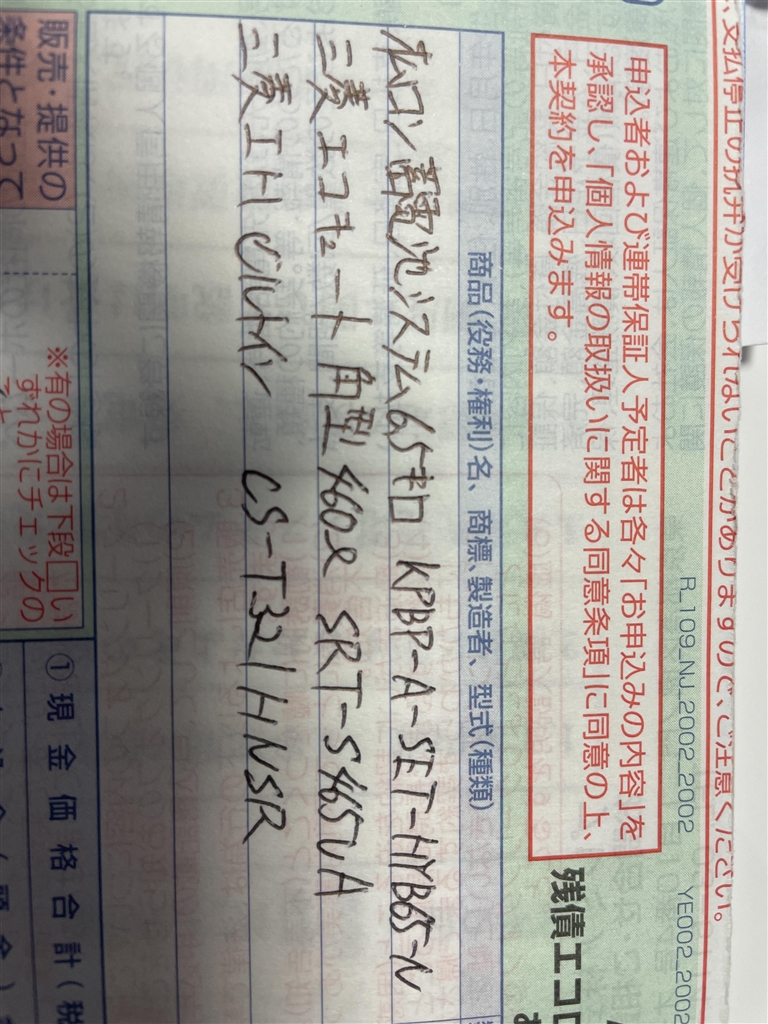 、支払停止の抗弁が受けられないことがありますので、ご注意ください。
R_109_NJ_2002.2002 YE002_2002
申込者および連帯保証人予定者は各々「お申込みの内容」を
承認し、「個人情報の取扱いに関する同意条項」に同意の上、
本契約を申込みます。
残債エコロ
商品(役務・権利)名、商標、製造者、型式(種類)
オムロン 蓄電池システム 6.5キロ KPBP-A-SET-HYB65-N
三菱 エコキュート 角型 460ℓ SRT-S465UA
三菱 IH ビルトイン CS-T321HNSR
販売・提供の
条件となって
※有の場合は下段□い
ずれかにチェックの
こと
①現金価格合計(税